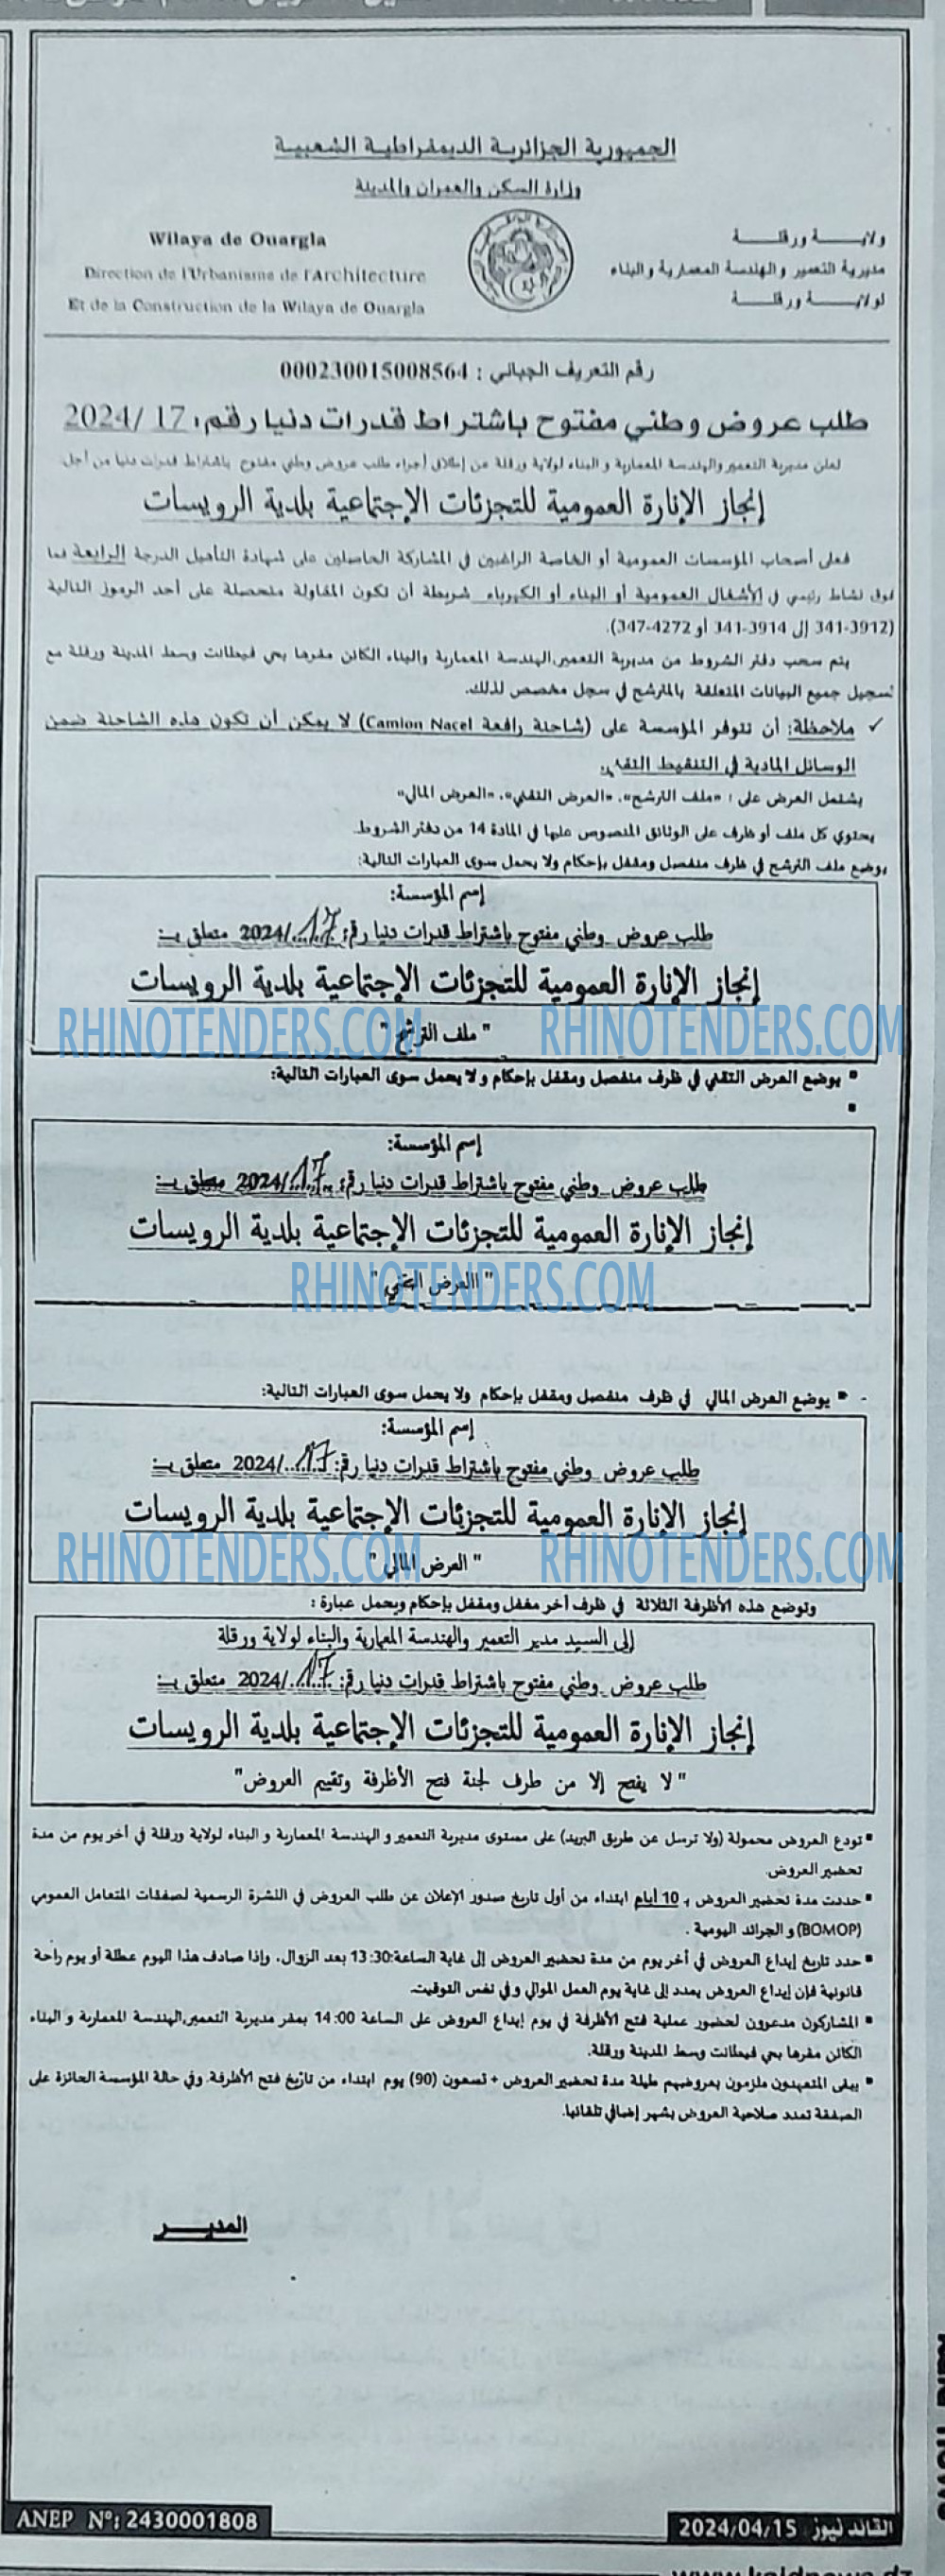 الجمهورية الجزائرية الديمقراطية الشعبية
وزارة السكن والعمران والمدينة
ولايـــة ورقـــلـــة
مديرية التعمير والهندسة المعمارية والبناء
لولايـــة ورقـــلـــة
Wilaya de Ouargla
Direction de l'Urbanisme de l'Architecture
Et de la Construction de la Wilaya de Ouargla
رقم التعريف الجبائي : 000230015008564
طلب عروض وطني مفتوح باشتراط قدرات دنيا رقم: 17 /2024
تعلن مديرية التعمير والهندسة المعمارية و البناء لولاية ورقلة عن إطلاق إجراء طلب عروض وطني مفتوح باشتراط قدرات دنيا من أجل
إنجاز الإنارة العمومية للتجزئات الإجتماعية بلدية الرويسات
فعلى أصحاب المؤسسات العمومية أو الخاصة الراغبين في المشاركة الحاصلين على شهادة التأهيل الدرجة الرابعة فما
فوق نشاط رئيسي في الأشغال العمومية أو البناء أو الكهرباء شريطة أن تكون المقاولة متحصلة على أحد الرموز التالية
(341-3912 إلى 341-3914 أو 347-4272).
يتم سحب دفتر الشروط من مديرية التعمير,الهندسة المعمارية والبناء الكائن مقرها بحي فيطانت وسط المدينة ورقلة مع
تسجيل جميع البيانات المتعلقة بالمترشح في سجل مخصص لذلك.
✓ ملاحظة: أن تتوفر المؤسسة على (شاحنة رافعة Camion Nacel) لا يمكن أن تكون هذه الشاحنة ضمن
الوسائل المادية في التنقيط التقني.
يشتمل العرض على : «ملف الترشح»، «العرض التقني»، «العرض المالي»
يحتوي كل ملف أو ظرف على الوثائق المنصوص عليها في المادة 14 من دفتر الشروط.
يوضع ملف الترشح في ظرف منفصل ومقفل بإحكام ولا يحمل سوى العبارات التالية:
إسم المؤسسة:
طلب عروض وطني مفتوح باشتراط قدرات دنيا رقم: 17/2024 متعلق بـ:
إنجاز الإنارة العمومية للتجزئات الإجتماعية بلدية الرويسات
" ملف الترشح "
RHINOTENDERS.COM RHINOTENDERS.COM
▪ يوضع العرض التقني في ظرف منفصل ومقفل بإحكام ولا يحمل سوى العبارات التالية:
▪
إسم المؤسسة:
طلب عروض وطني مفتوح باشتراط قدرات دنيا رقم: 17/2024 متعلق بـ:
إنجاز الإنارة العمومية للتجزئات الإجتماعية بلدية الرويسات
" االعرض التقني "
RHINOTENDERS.COM
- ▪ يوضع العرض المالي في ظرف منفصل ومقفل بإحكام ولا يحمل سوى العبارات التالية:
إسم المؤسسة:
طلب عروض وطني مفتوح باشتراط قدرات دنيا رقم: 17/2024 متعلق بـ:
إنجاز الإنارة العمومية للتجزئات الإجتماعية بلدية الرويسات
" العرض المالي "
RHINOTENDERS.COM RHINOTENDERS.COM
وتوضع هذه الأظرفة الثلاثة في ظرف أخر مغفل ومقفل بإحكام ويحمل عبارة :
إلى السيد مدير التعمير والهندسة المعمارية والبناء لولاية ورقلة
طلب عروض وطني مفتوح باشتراط قدرات دنيا رقم: 17/2024 متعلق بـ:
إنجاز الإنارة العمومية للتجزئات الإجتماعية بلدية الرويسات
" لا يفتح إلا من طرف لجنة فتح الأظرفة وتقييم العروض"
▪ تودع العروض محمولة (ولا ترسل عن طريق البريد) على مستوى مديرية التعمير و الهندسة المعمارية و البناء لولاية ورقلة في أخر يوم من مدة
تحضير العروض.
▪ حددت مدة تحضير العروض بـ 10 أيام ابتداء من أول تاريخ صدور الإعلان عن طلب العروض في النشرة الرسمية لصفقات المتعامل العمومي
(BOMOP) و الجرائد اليومية .
▪ حدد تاريخ إيداع العروض في أخر يوم من مدة تحضير العروض إلى غاية الساعة:13:30 بعد الزوال، وإذا صادف هذا اليوم عطلة أو يوم راحة
قانونية فإن إيداع العروض يمدد إلى غاية يوم العمل الموالي وفي نفس التوقيت.
▪ المشاركون مدعوون لحضور عملية فتح الأظرفة في يوم إيداع العروض على الساعة 14:00 بمقر مديرية التعمير,الهندسة المعمارية و البناء
الكائن مقرها بحي فيطانت وسط المدينة ورقلة.
▪ يبقى المتعهدون ملزمون بعروضهم طيلة مدة تحضير العروض + تسعون (90) يوم ابتداء من تاريخ فتح الأظرفة. وفي حالة المؤسسة الحائزة على
الصفقة تمدد صلاحية العروض بشهر إضافي تلقائيا.
المديـــر
القائد نيوز 2024/04/15
ANEP N°: 2430001808